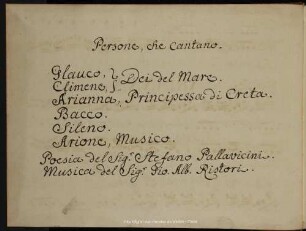 Persone, che Cantano.
Glauco, } Dei del Mare.
Climene, }
Arianna, Principessa di Creta.
Bacco.
Sileno.
Arione, Musico.
Poesia del Sigr. Stefano Pallavicini.
Musica del Sigr. Gio. Alb. Ristori.